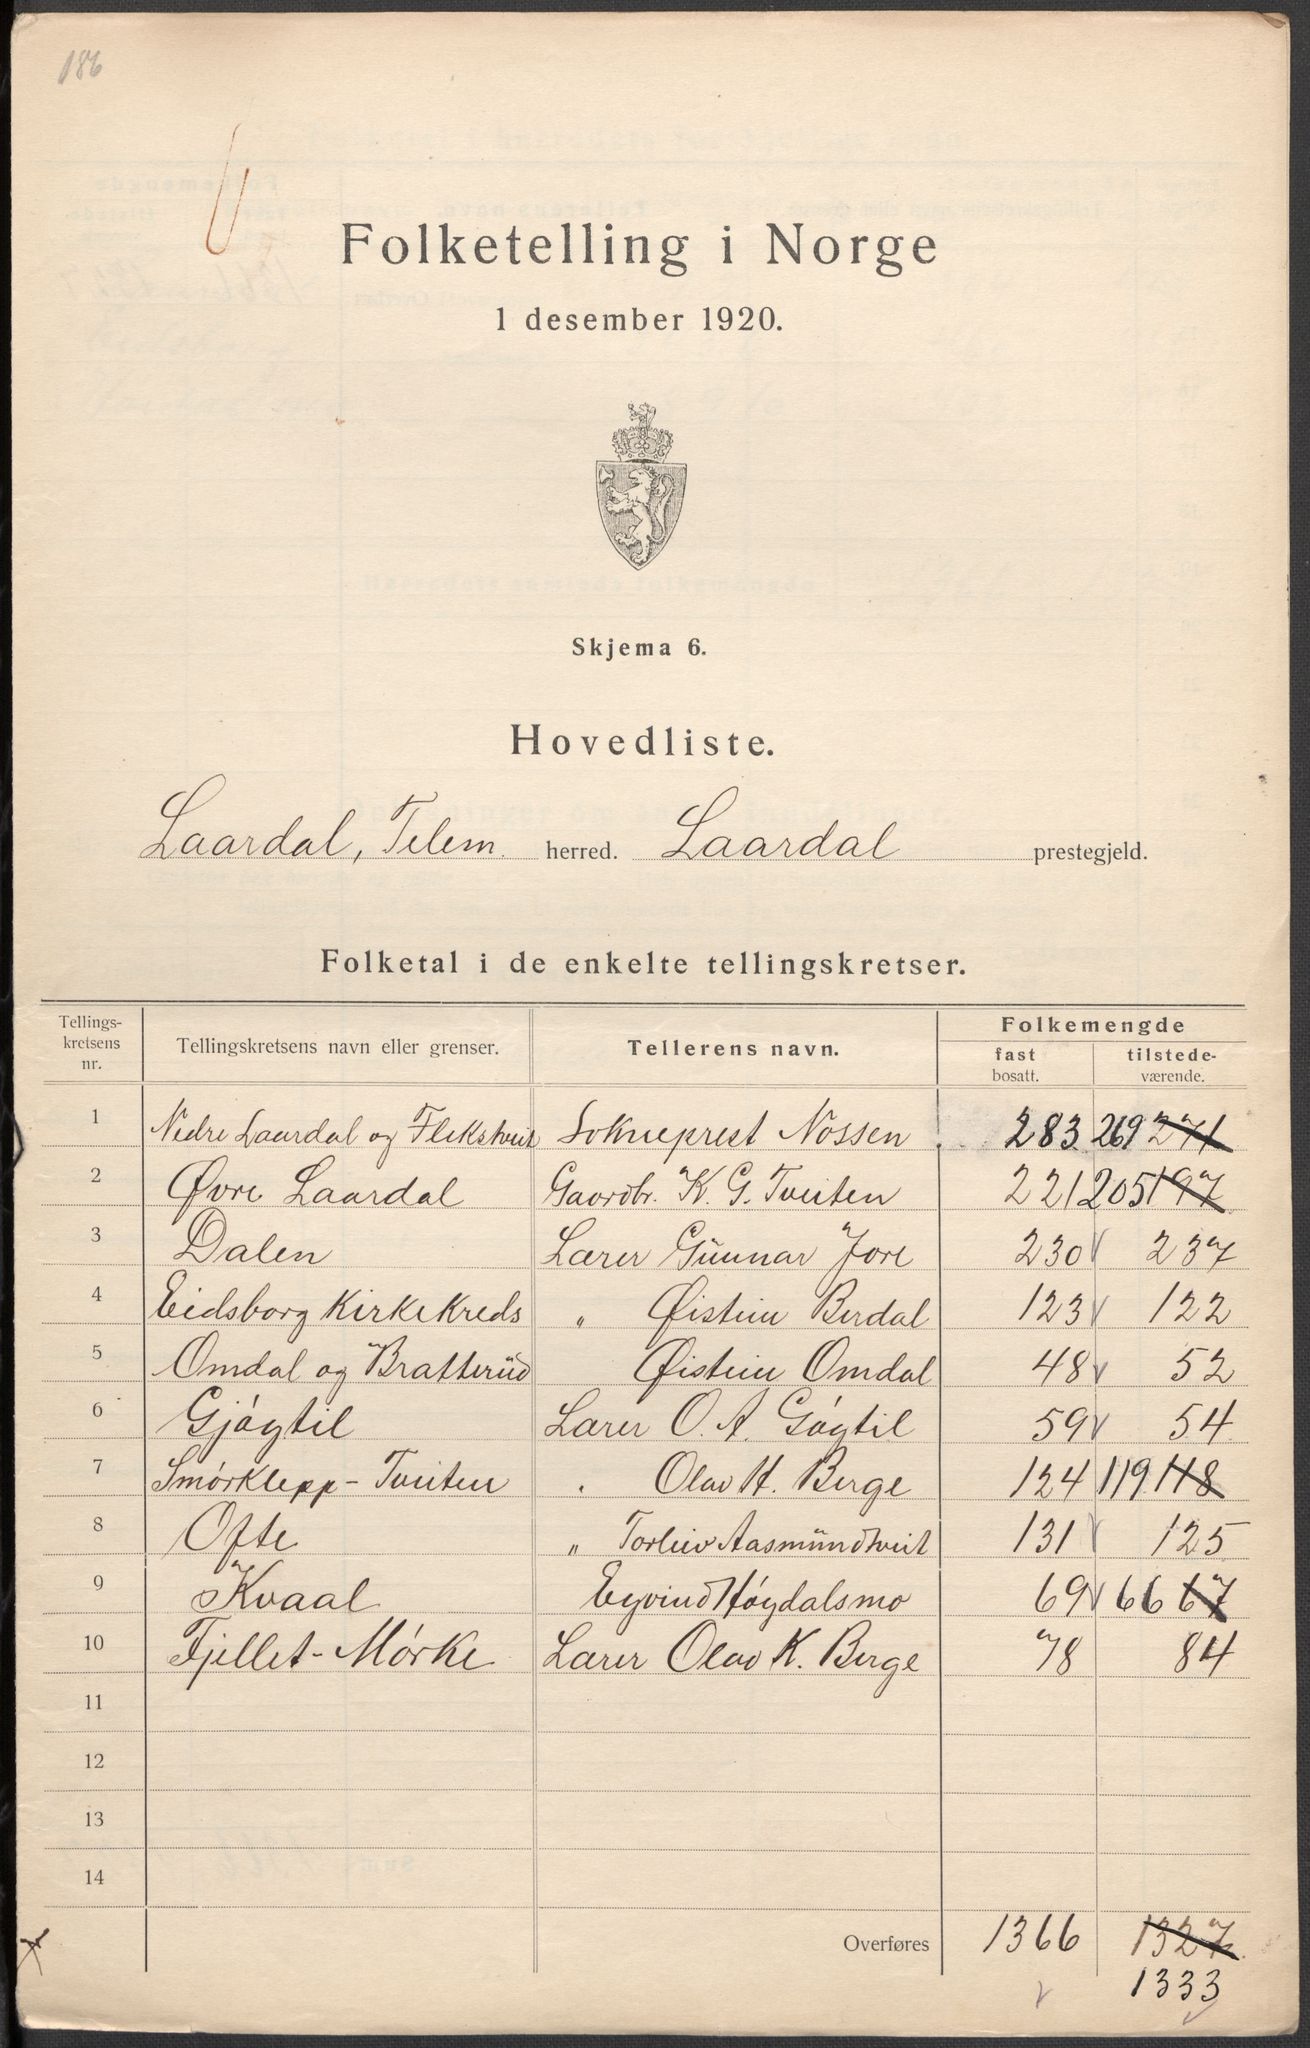 186
Folketelling i Norge
1 desember 1920.
Skjema 6.
Hovedliste.
Laardal, Telem. herred. Laardal prestegjeld.
Folketal i de enkelte tellingskretser.
Tellings-kretsens nr. Tellingskretsens navn eller grenser. Tellerens navn. Folkemengde fast bosatt. tilstede-værende.
1 Nedre Laardal og Flekstveit Sokneprest Nossen 283 269 271
2 Øvre Laardal Gaardbr. K. G. Tveiten 221 205 197
3 Dalen Lærer Gunnar Jore 230 237
4 Eidsborg Kirkekreds " Øistein Berdal 123 122
5 Omdal og Bratterud Øistein Omdal 48 52
6 Gjøgtil Lærer O. A. Gøgtil 59 54
7 Smørklepp - Tveiten " Olav H. Berge 124 119 118
8 Ofte " Torleiv Aasmundtveit 131 125
9 Kvaal Eyvind Høgdalsmo 69 66 67
10 Fjellet - Mørke Lærer Olav K. Berge 78 84
11
12
13
14
Overføres 1366 1327
1333